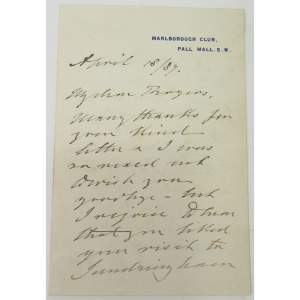 MARLBOROUGH CLUB,
PALL MALL. S.W.
April 18/89.
My dear Rogers,
Many thanks for
your kind
letter & I was
so vexed not
to wish you
goodbye – but
I rejoice to hear
that you liked
your visit to
Sandringham